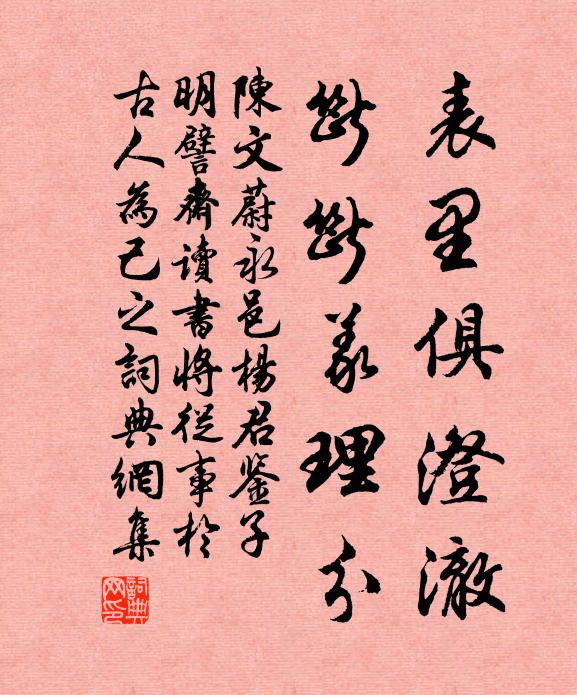 表里俱澄澈
斷斷義理分
陳文蔚永邑楊君鉴子
明譬齋讀書將從事於
古人為己之詞典網集
詞典网印